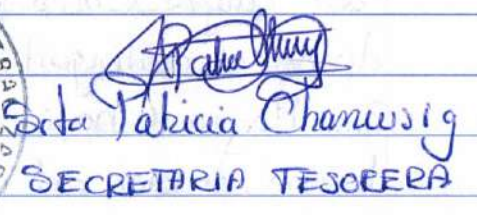 Srta Patricia Chanusig
SECRETARIA TESORERA